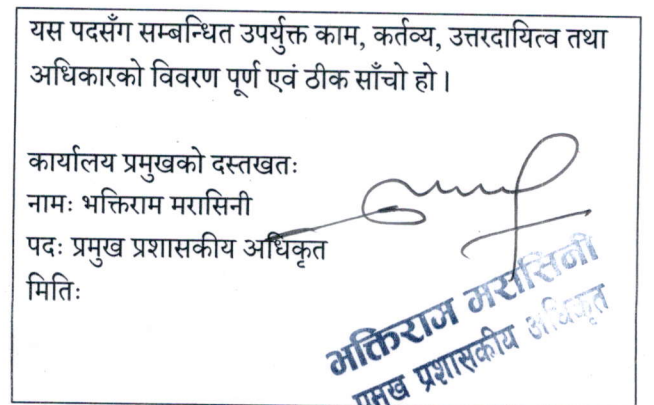 यस पदसँग सम्बन्धित उपर्युक्त काम, कर्तव्य, उत्तरदायित्व तथा
अधिकारको विवरण पूर्ण एवं ठीक साँचो हो।
कार्यालय प्रमुखको दस्तखतः
नामः भक्तिराम मरासिनी
पदः प्रमुख प्रशासकीय अधिकृत
मितिः
भक्तिराम मरासिनी
प्रमुख प्रशासकीय अधिकृत